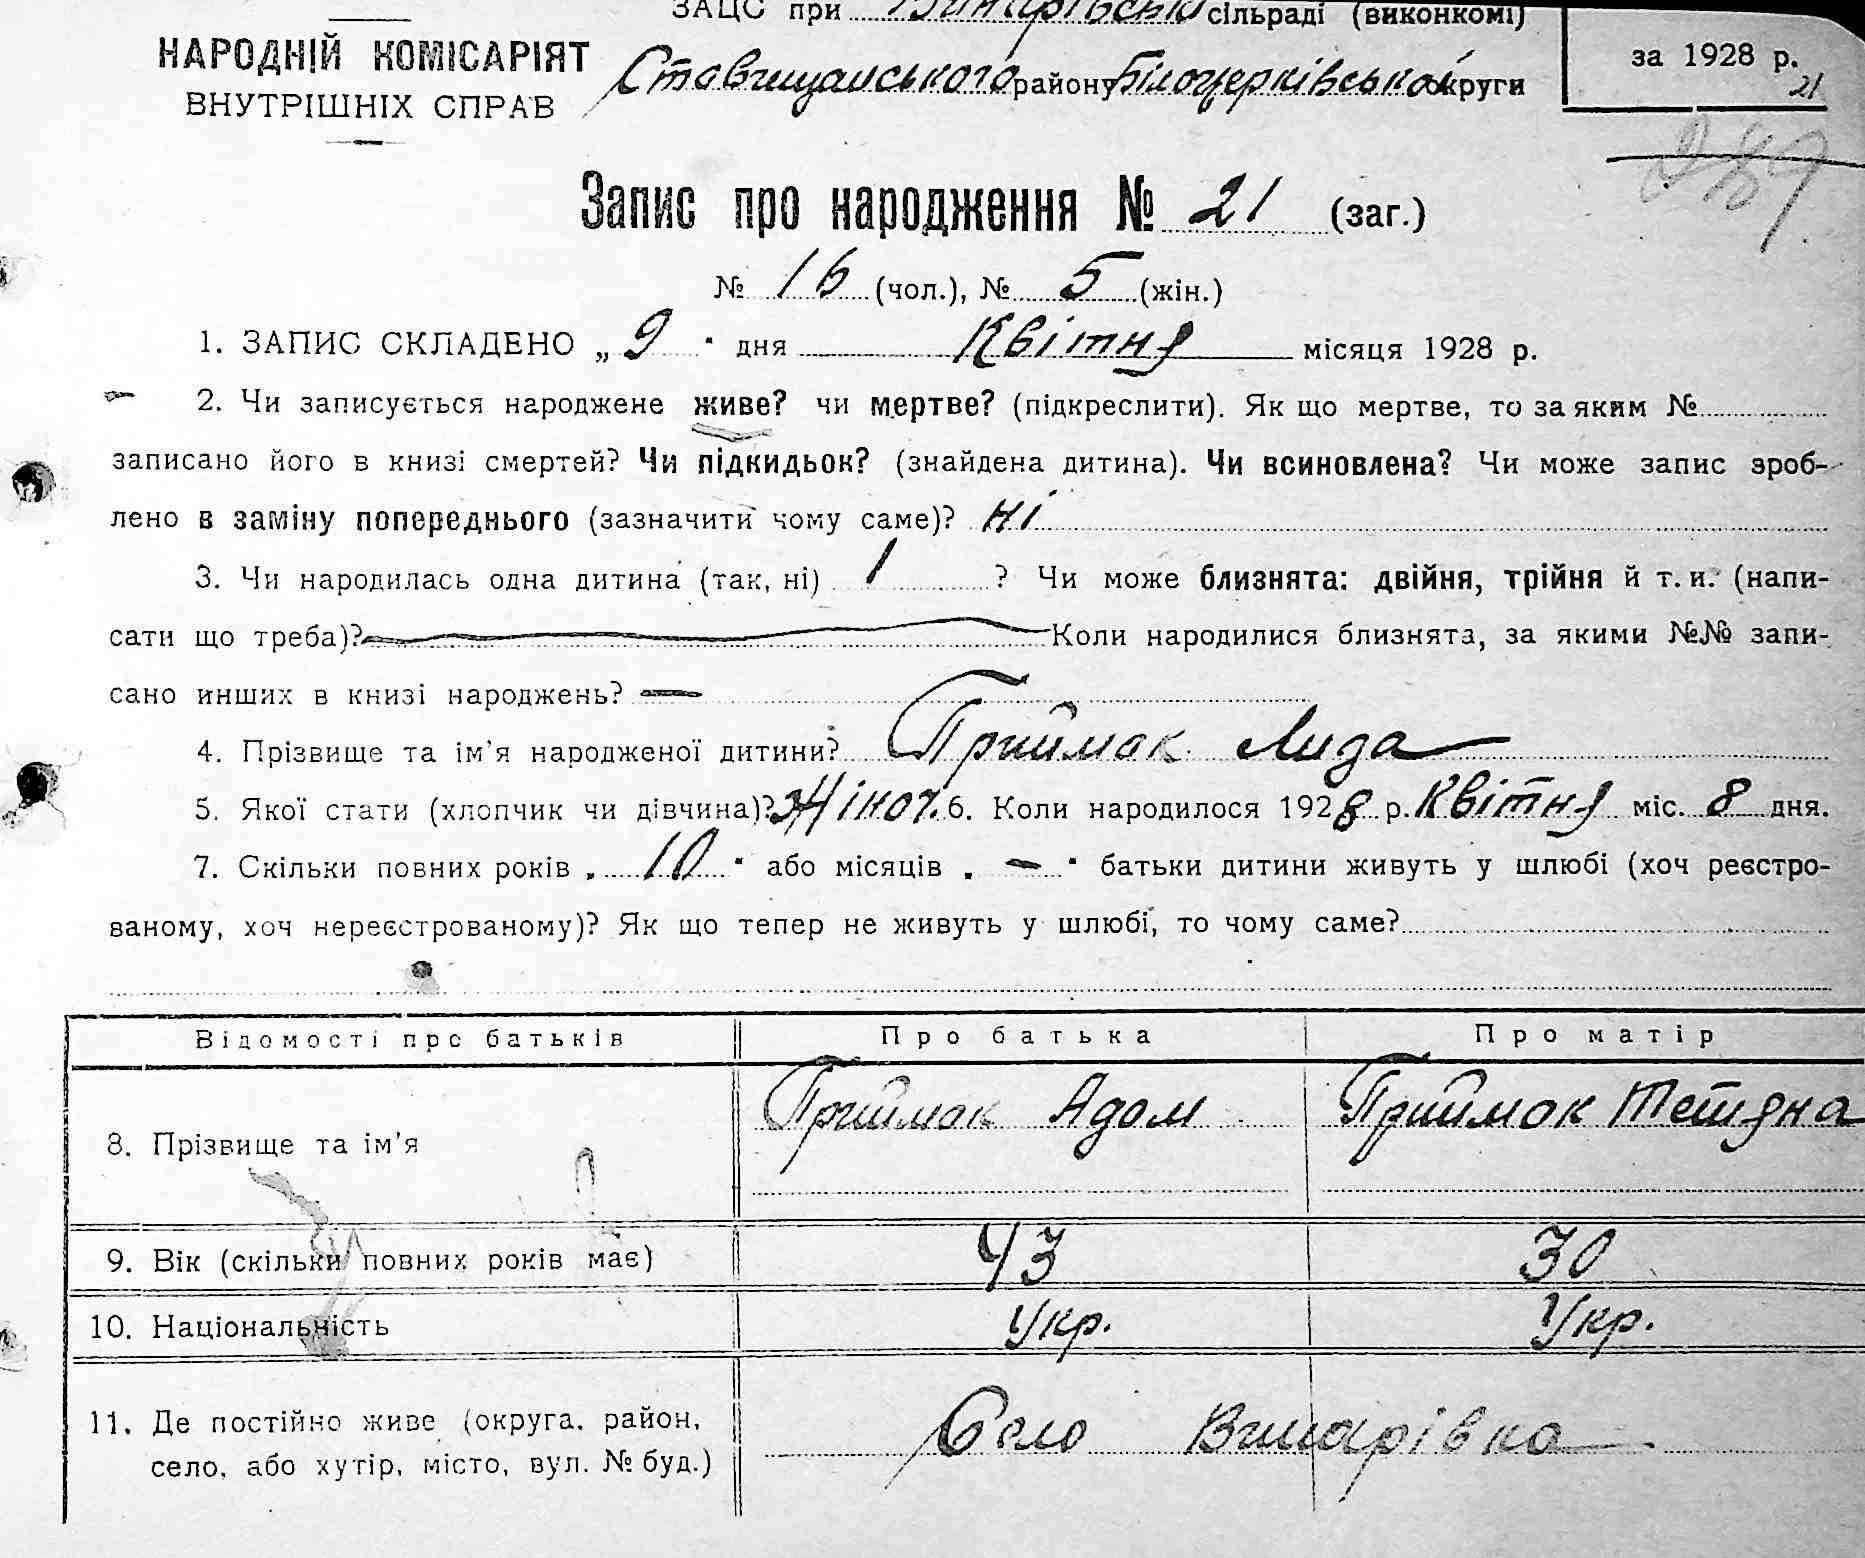 ЗАЦС при Винарівській сільраді (виконкомі)
НАРОДНІЙ КОМІСАРІЯТ
ВНУТРІШНІХ СПРАВ
Ставищанського району Білоцерківської округи
за 1928 р.
21
289
Запис про народження № 21 (заг.)
№ 16 (чол.), № 5 (жін.)
1. ЗАПИС СКЛАДЕНО „ 9 " дня Квітня місяця 1928 р.
2. Чи записується народжене живе? чи мертве? (підкреслити). Як що мертве, то за яким №
записано його в книзі смертей? Чи підкидьок? (знайдена дитина). Чи всиновлена? Чи може запис зроб-
лено в заміну попереднього (зазначити чому саме)? ні
3. Чи народилась одна дитина (так, ні) 1 ? Чи може близнята: двійня, трійня й т. и. (напи-
сати що треба)? Коли народилися близнята, за якими №№ запи-
сано инших в книзі народжень? —
4. Прізвище та ім'я народженої дитини? Приймак Лида
5. Якої стати (хлопчик чи дівчина)? Жіноч. 6. Коли народилося 1928 р. Квітня міс. 8 дня.
7. Скільки повних років „ 10 " або місяців „ — " батьки дитини живуть у шлюбі (хоч реєстро-
ваному, хоч нереєстрованому)? Як що тепер не живуть у шлюбі, то чому саме?
Відомості про батьків Про батька Про матір
8. Прізвище та ім'я Приймак Адам Приймак Тетяна
9. Вік (скільки повних років має) 43 30
10. Національність Укр. Укр.
11. Де постійно живе (округа, район,
село, або хутір, місто, вул. № буд.) Село Винарівка